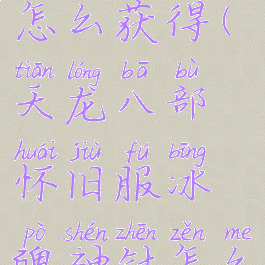 怎么获得(
tiān lóng bā bù
天龙八部
huái jiù fú bīng
怀旧服冰
pò shén zhēn zěn me
魄神针怎么